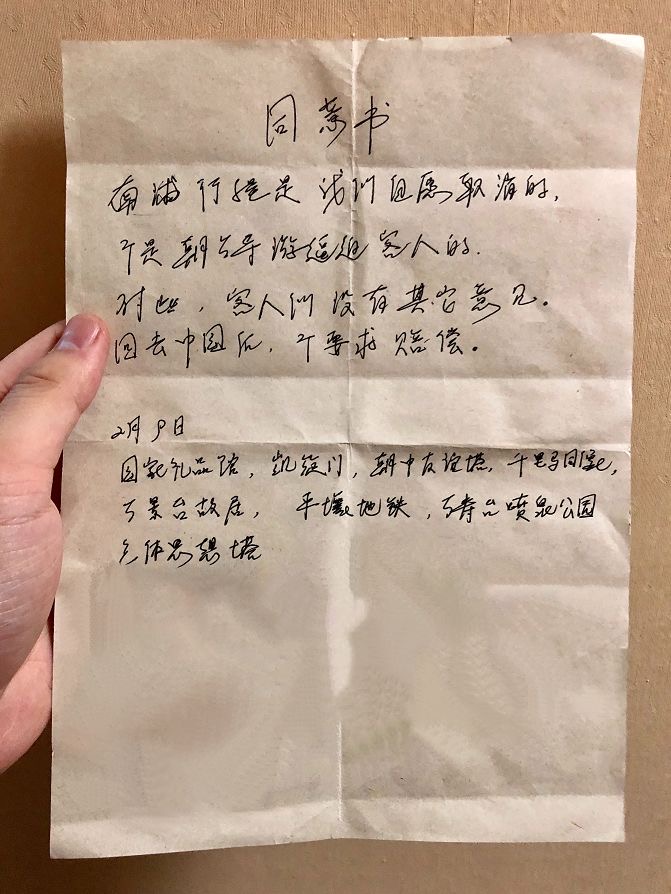 同意书
南浦行程是我们自愿取消的,
不是朝方导游逼迫客人的.
对此, 客人们没有其它意见。
回去中国后, 不要求赔偿。
2月9日
国家礼品馆, 凯旋门, 朝中友谊塔, 千里马铜像,
万景台故居, 平壤地铁, 万寿台喷泉公园
主体思想塔